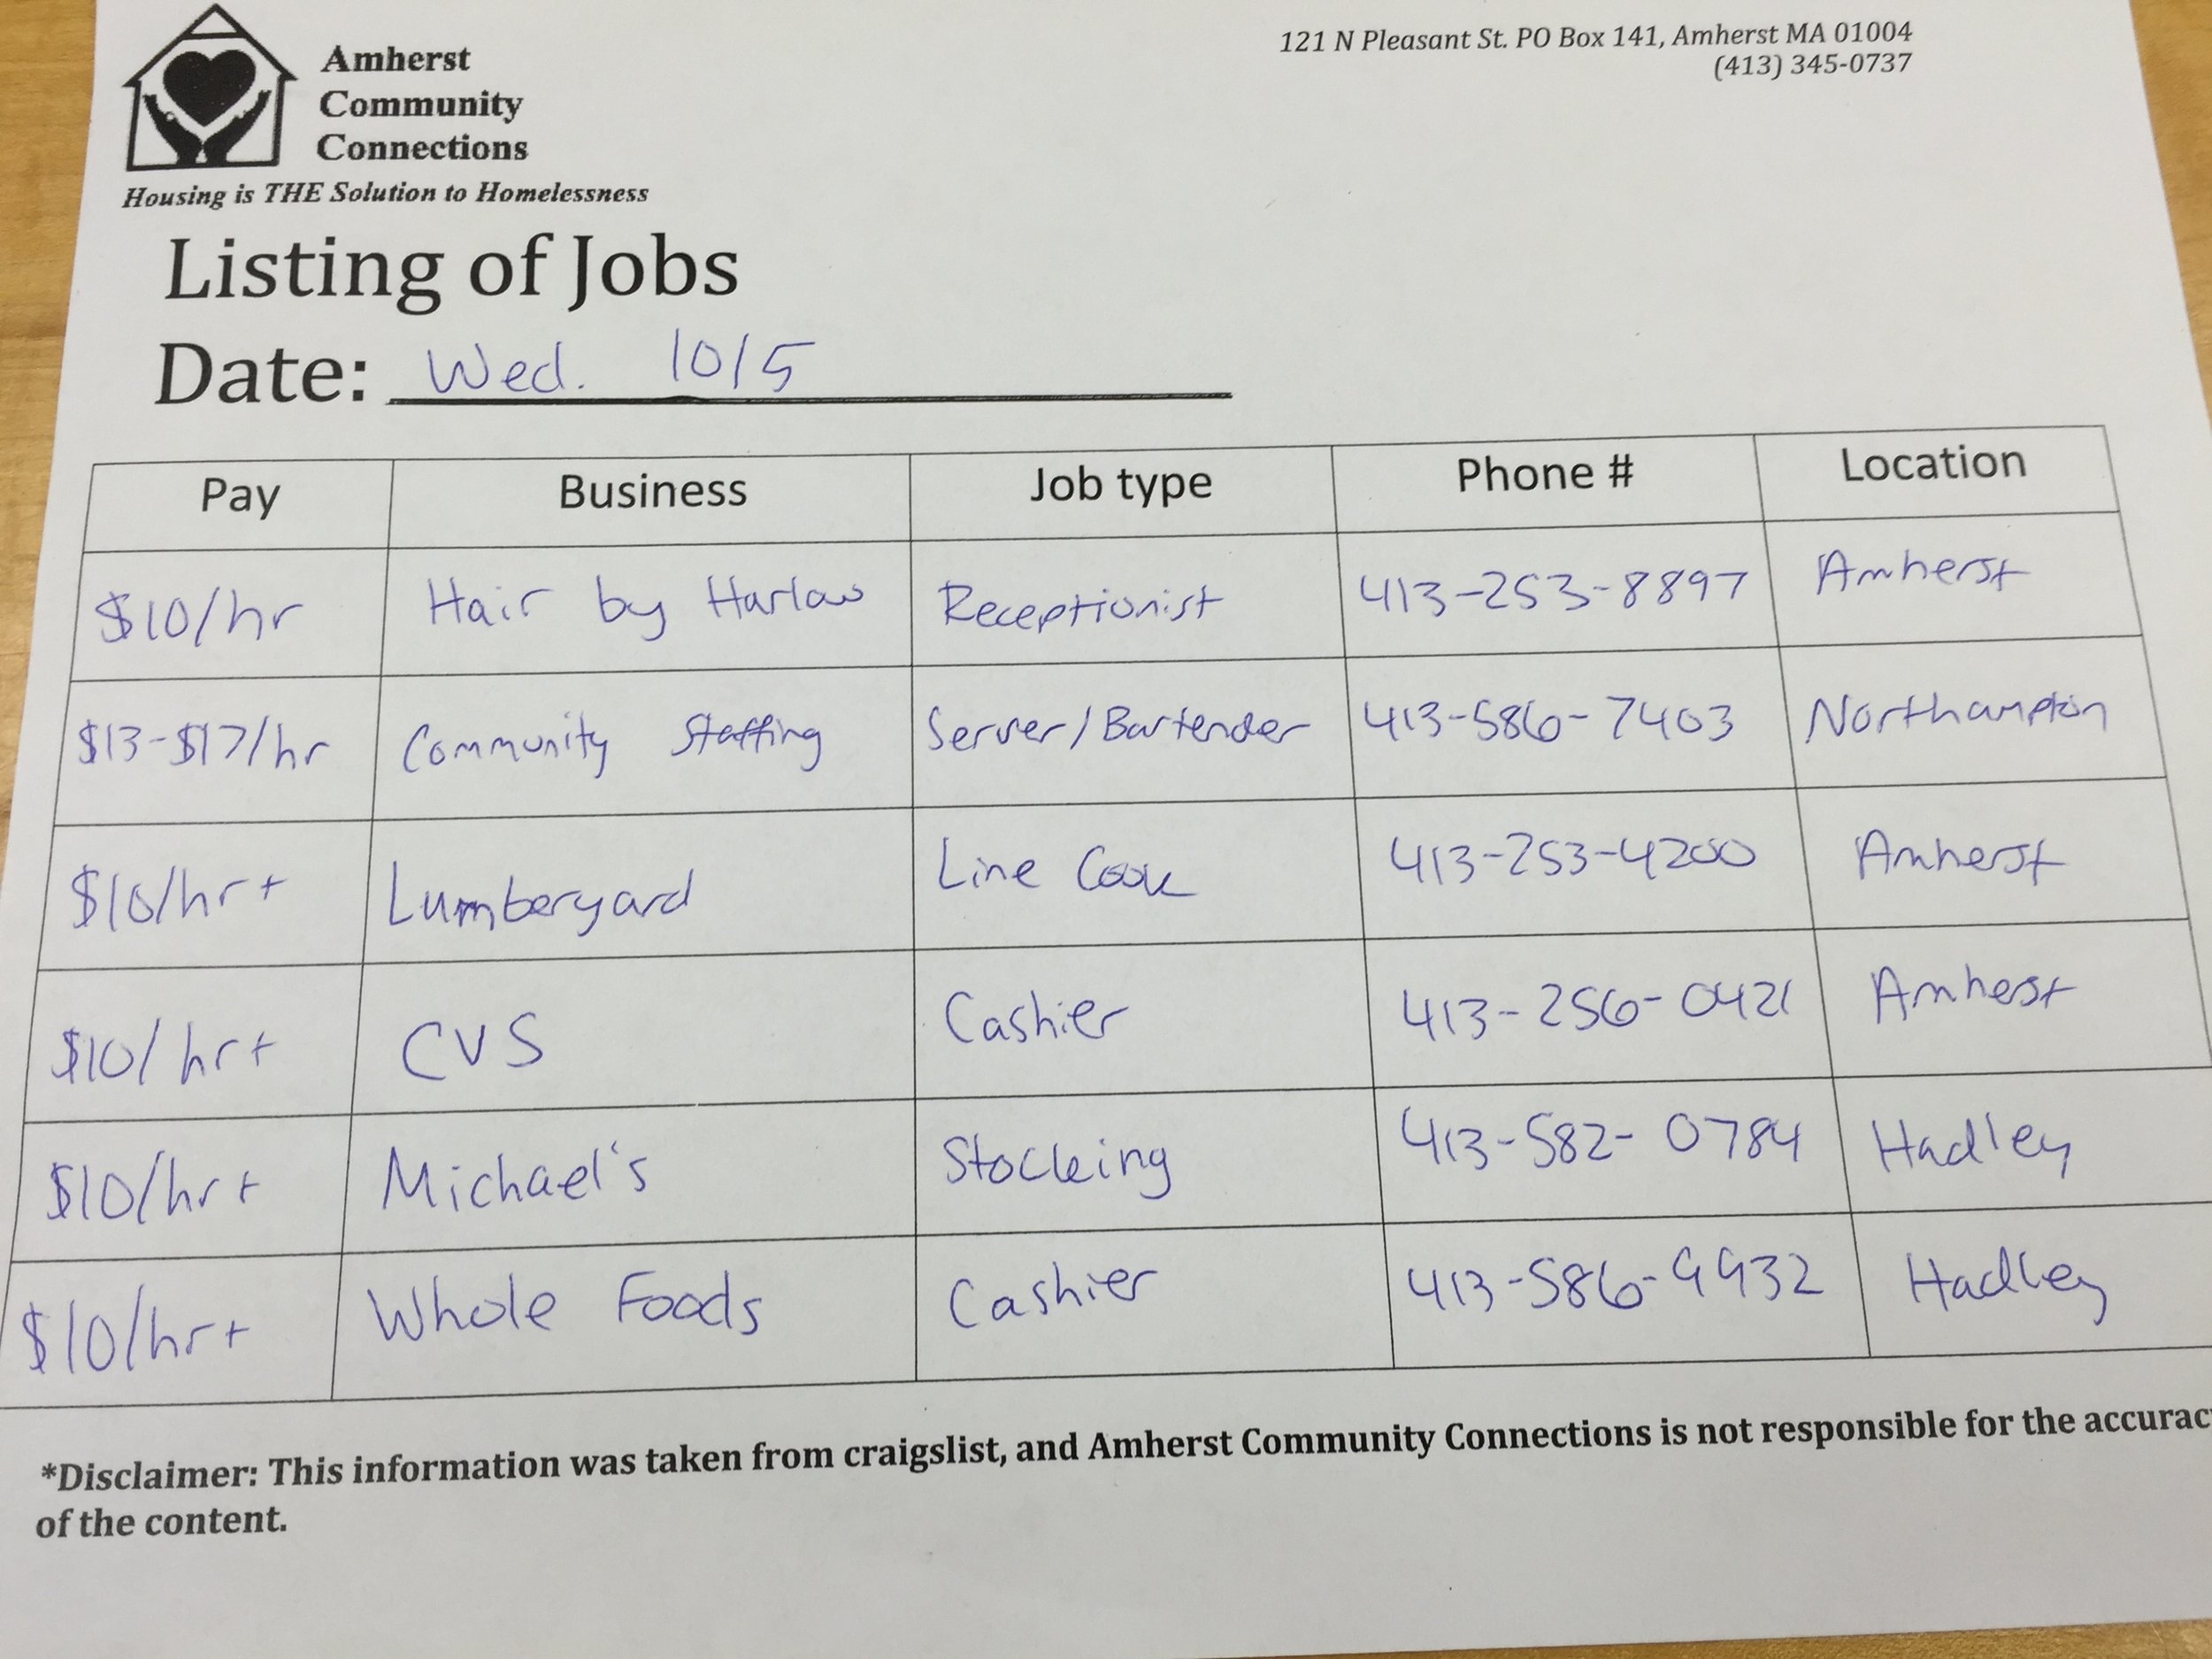 Amherst
Community
Connections
Housing is THE Solution to Homelessness
121 N Pleasant St. PO Box 141, Amherst MA 01004
(413) 345-0737
Listing of Jobs
Date: Wed. 10/5
Pay Business Job type Phone # Location
$10/hr Hair by Harlow Receptionist 413-253-8897 Amherst
$13-$17/hr Community Staffing Server/Bartender 413-586-7403 Northampton
$10/hr+ Lumberyard Line Cook 413-253-4200 Amherst
$10/hr+ CVS Cashier 413-256-0421 Amherst
$10/hr+ Michael's Stocking 413-582-0784 Hadley
$10/hr+ Whole Foods Cashier 413-586-9932 Hadley
*Disclaimer: This information was taken from craigslist, and Amherst Community Connections is not responsible for the accurac
of the content.